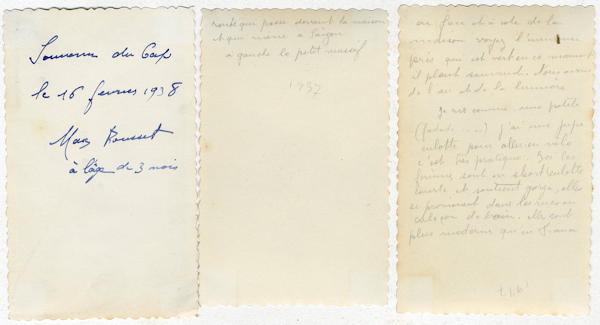 Souvenir du Cap
le 16 fevrier 1938
Max Rousset
à l'âge de 3 mois
route qui passe devant la maison
et qui mène à Saïgon
à gauche le petit massif
1937
en face et à côté de la
maison voyez l'immense
près qui est vert en ce moment
il pleut souvent. Nous avons
de l'eau et de la lumière
Je suis comme une petite
j'ai une jupe
culotte pour aller en vélo
c'est très pratique. Ici les
femmes sont en short culotte
courte et soutient gorge, elles
se promènent dans les rues en
caleçon de bain. Elles sont
plus modernes qu'en France